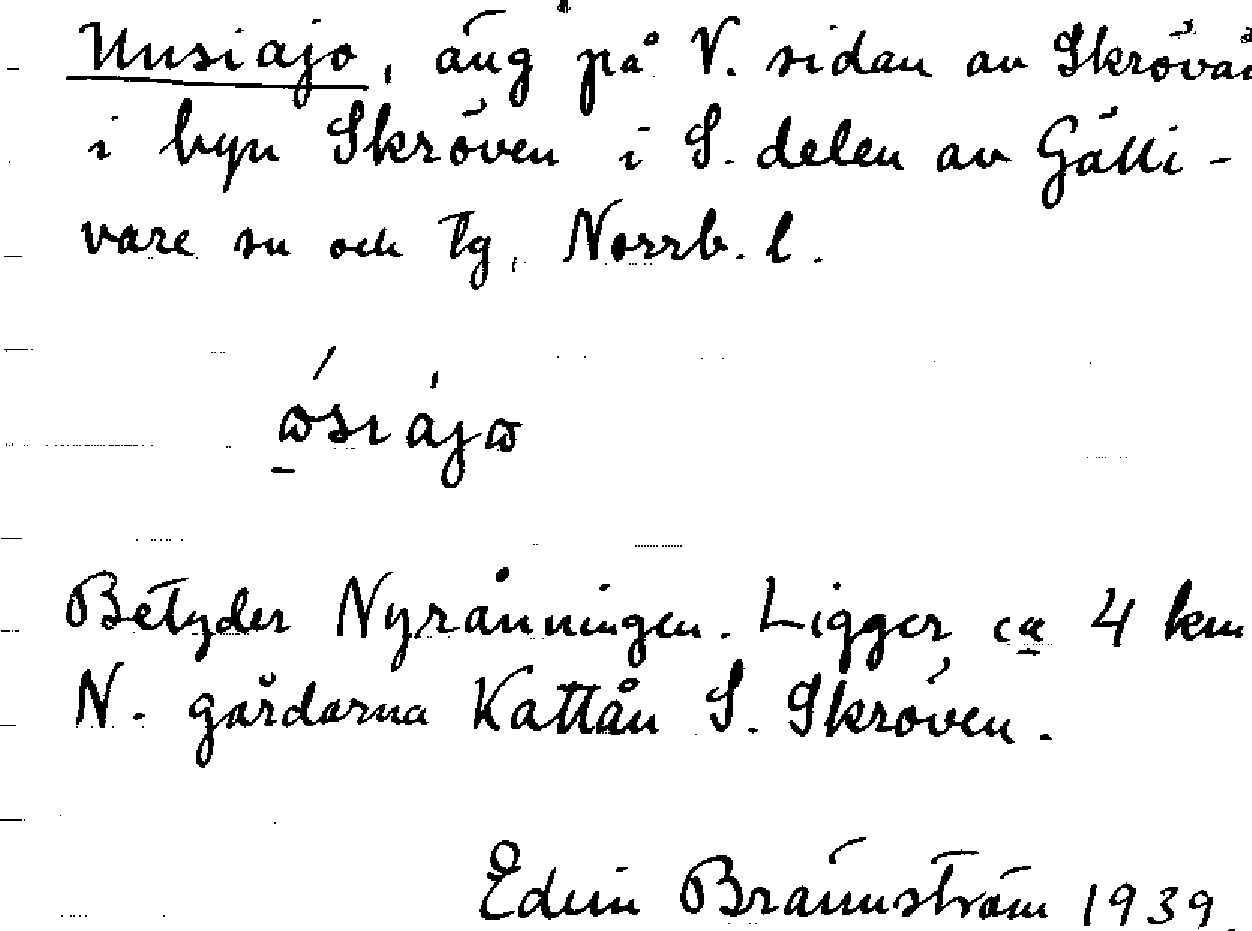 Uusiajo, äng på V. sidan av Skrövån
i byn Skröven i S. delen av Gälli-
vare sn och tg, Norrb. l.
Betyder Nyrönningen. Ligger ca 4 km
N. gårdarna Kattån S. Skröven.
Edvin Brännström 1939.